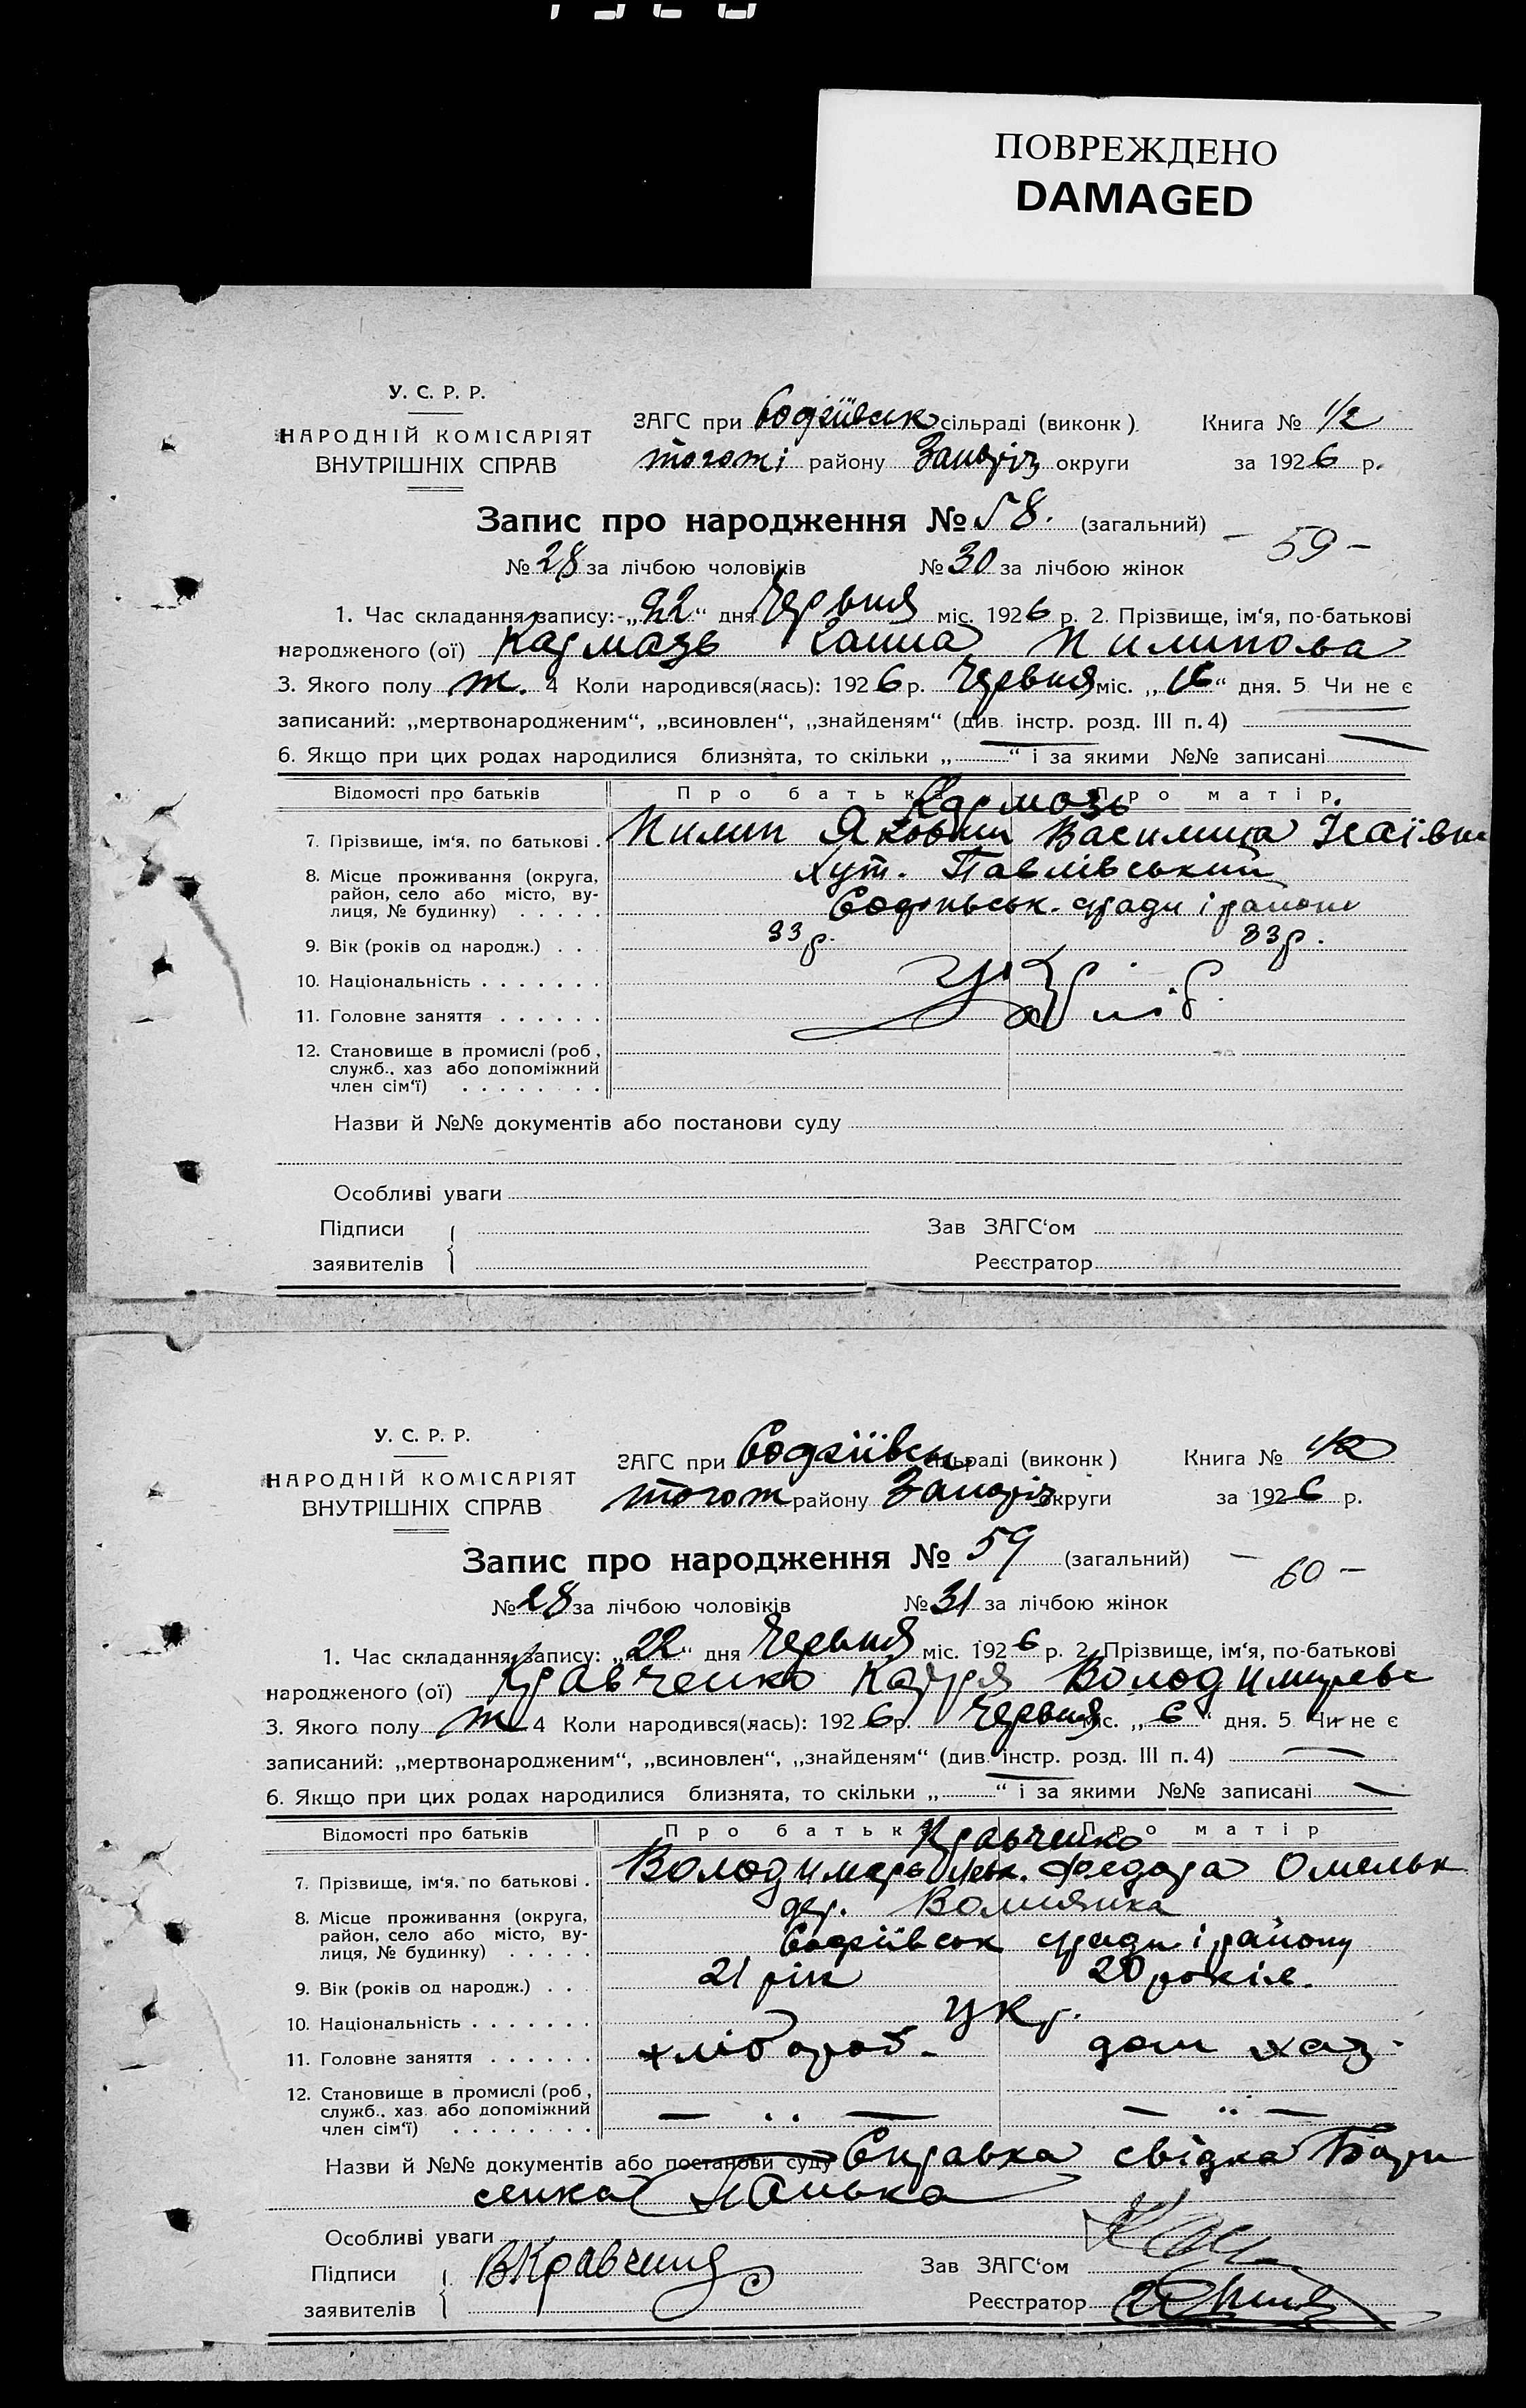 ПОВРЕЖДЕНО
DAMAGED
У. С. Р. Р.
НАРОДНІЙ КОМІСАРІЯТ
ВНУТРІШНІХ СПРАВ
ЗАГС при Софіївськ сільраді (виконк). Книга № 1/2
тогожі району Запоріз округи за 1926 р.
Запис про народження № 58. (загальний)
- 59 -
№ 28 за лічбою чоловіків № 30 за лічбою жінок
1. Час складання запису: „22“ дня Червня міс. 1926 р. 2. Прізвище, ім‘я, по-батькові
народженого (ої) Кармазь Ганна Пилипова
3. Якого полу ж. 4 Коли народився(лась): 1926 р. Червня міс. „16“ дня. 5 Чи не є
записаний: „мертвонародженим“, „всиновлен“, „знайденям“ (див. інстр. розд. III п. 4)
6. Якщо при цих родах народилися близнята, то скільки „—“ і за якими №№ записані —
Відомості про батьків Про батька Про матір
Кармазь
7. Прізвище, ім‘я. по батькові . Пилип Якович Василина Ісаївна
8. Місце проживання (округа, район, село або місто, вулиця, № будинку) . . . . . хут. Павлівський
Софіївськ. сіради і району
9. Вік (років од народж.) . . 33 р. 33 р.
10. Національність . . . . . . . Укр
11. Головне заняття . . . . . . хліб
12. Становище в промислі (роб,
служб.. хаз або допоміжний
член сім‘ї) . . . . . . . .
Назви й №№ документів або постанови суду
Особливі уваги
Підписи Зав ЗАГС‘ом
заявителів Реєстратор
У. С. Р. Р.
НАРОДНІЙ КОМІСАРІЯТ
ВНУТРІШНІХ СПРАВ
ЗАГС при Софіївськ сільраді (виконк) Книга № 1/2
тогож району Запоріз округи за 1926 р.
Запис про народження № 59 (загальний)
- 60 -
№ 28 за лічбою чоловіків № 31 за лічбою жінок
1. Час складання запису: „22“ дня Червня міс. 1926 р. 2. Прізвище, ім‘я, по-батькові
народженого (ої) Кравченко Катря Володимирівс
3. Якого полу ж 4 Коли народився(лась): 1926 р. Червня міс. „6“ дня. 5 Чи не є
записаний: „мертвонародженим“, „всиновлен“, „знайденям“ (див. інстр. розд. III п. 4) —
6. Якщо при цих родах народилися близнята, то скільки „—“ і за якими №№ записані —
Відомості про батьків Про батька Про матір
Кравченко
7. Прізвище, ім‘я. по батькові . Володимерь Федора Омельк
8. Місце проживання (округа, район, село або місто, вулиця, № будинку) . . . . . дер. Волнянка
Софіївськ сіради і району
9. Вік (років од народж.) . . 21 рік 20 років.
10. Національність . . . . . . . укр.
11. Головне заняття . . . . . . хлібороб. дом хаз.
12. Становище в промислі (роб,
служб.. хаз. або допоміжний
член сім‘ї) . . . . . . . . — .. — — .. —
Назви й №№ документів або постанови суду Справка свідка Бори
сенка Панька
Особливі уваги
Підписи ВКравченко Зав ЗАГС‘ом
заявителів Реєстратор